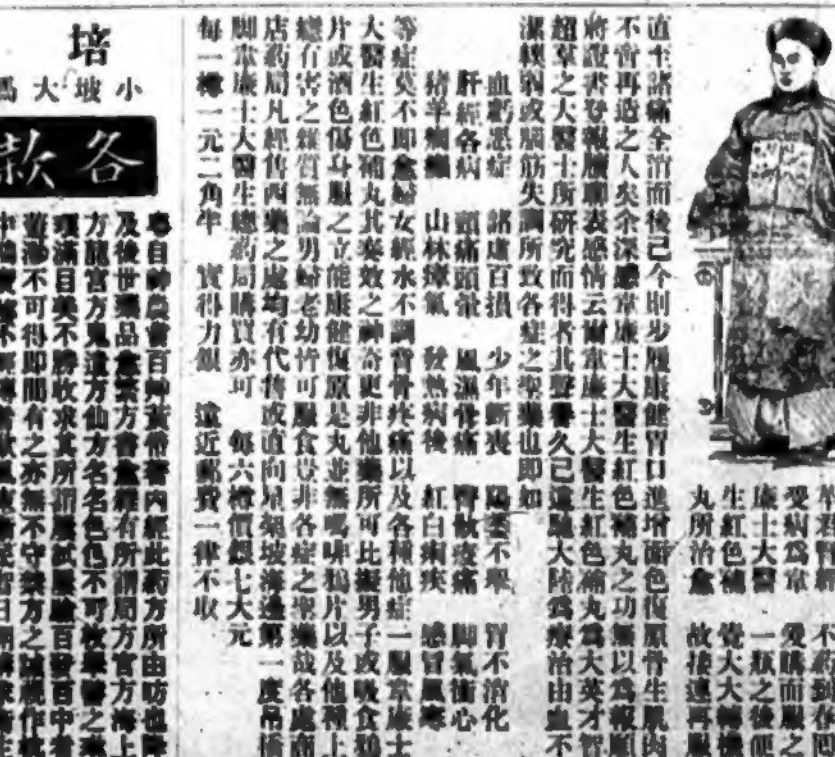 不到在四
愛購而服之
一瓶之後便
覺大大轉機
故接連再服
受病爲韋
廉士大醫
生紅色補
丸所治愈
直至諸痛全消而後已今則步履康健胃口進增面色復原骨生肌肉
不啻再造之人矣余深感韋廉士大醫生紅色補丸之功無以爲報願
將證書登報牘聊表感情云爾韋廉士大醫生紅色補丸爲大英才智
超羣之大醫士所研究而得者其聲譽久已遠馳大陸爲療治由血不
潔軟弱或腦筋失調所致各症之聖藥也即如
血虧悲症 諸虛百損 少年斲喪 陽萎不舉 胃不消化
肝經各病 頭痛頭暈 風濕骨痛 腎敏疼痛 脚氣衝心
豬羊癇癲 山林瘴氣 發熱病後 紅白痢疾 感冒風寒
等症莫不即愈婦女經水不調背脊疼痛以及各種他症一服韋廉士
大醫生紅色補丸其奏效之神奇更非他藥所可比擬男子或吸食鴉
片或酒色傷身服之立能康健復原是丸並無嗎啡鴉片以及他種上
癮有害之雜質無論男婦老幼皆可服食豈非各症之聖藥哉各處商
店藥局凡經售西藥之處均有代售或直向星架坡海邊第一度吊橋
脚韋廉士大醫生總藥局購買亦可 每六樽價銀七大元
每一樽一元二角半 實得力銀 遠近郵費一律不收
培
小坡大馬
各款
粵自神農嘗百艸黃帝著內經此藥方所由昉也降
及後世藥品愈繁方書愈 有所謂局方官方海上
方龍宮方鬼遺方仙方名名色色不可枚舉醫之
琅滿目美不勝收求其所謂屢試屢驗百發百中者
不可得即間有之亦無不守禁方之